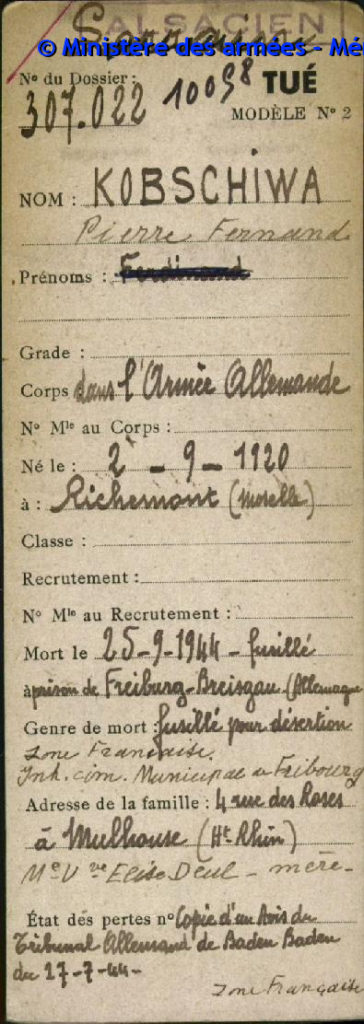 ALSACIEN
© Ministère des armées - Mé
N° du Dossier :
307.022 10098 TUÉ
MODÈLE N° 2
NOM : KOBSCHIWA
Pierre Fernand
Prénoms : Ferdinand
Grade :
Corps dans l'Armée Allemande
N° Mle au Corps :
Né le : 2 - 9 - 1920
à : Richemont (Moselle)
Classe :
Recrutement :
N° Mle au Recrutement :
Mort le 25-9-1944 - fusillé
à prison de Freiburg-Breisgau (Allemagne
Genre de mort : fusillé pour désertion
Zone Française.
Inh. cim. Municipal de Fribourg
Adresse de la famille : 4 rue des Roses
à Mulhouse (Ht Rhin)
Me Vve Elise Deul - mère -
État des pertes n° Copie d'un Avis du
Tribunal Allemand de Baden Baden
du 27-7-44-
Zone Française